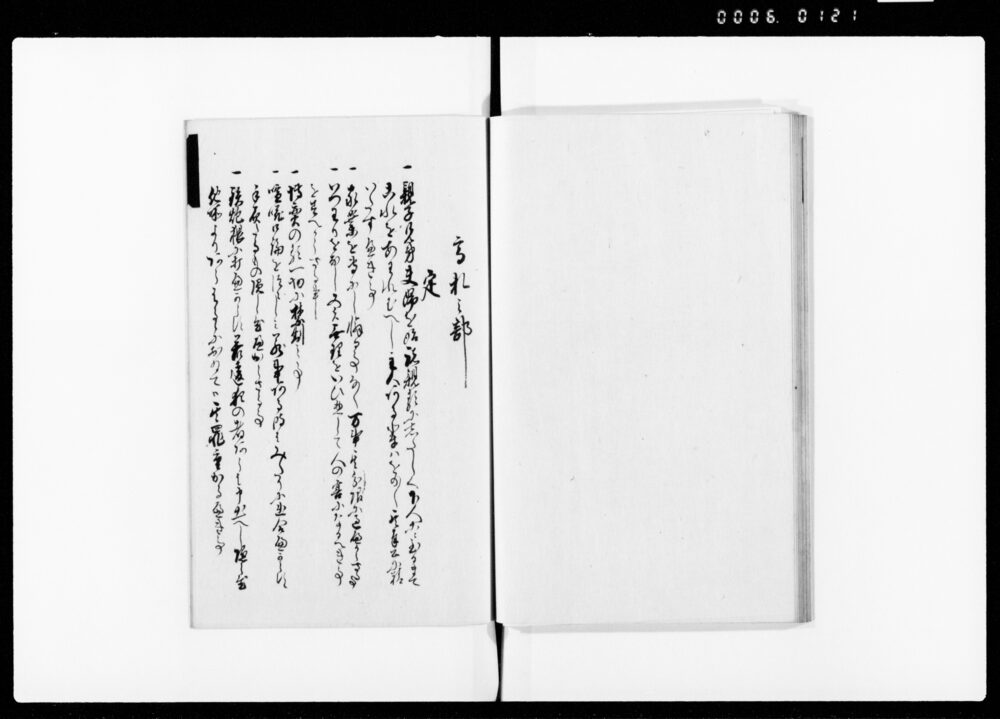 0006. 0121
高札之部
定
一 親子兄弟夫婦を始諸親類にしたしく下人等に至るまて
これをあわれむへし主人ある輩ハをの〱其奉公に精
いたすへき事
一 家業を専にし懈る事なく万事其分限に過へからさる事
一 いつわりをなし又ハ無理をいひ惣して人の害になるへき事
をすへからさる事
一 博奕の類一切に禁制之事
一 喧嘩口論をつゝしミ若其事ある時ミたりに出合へからす
手負たるもの隠し置へからさる事
一 鉄炮猥に打へからす若違犯の者あらハ申出へし隠し置
他所よりあらはるゝにおゐてハ其罪重かるへき事